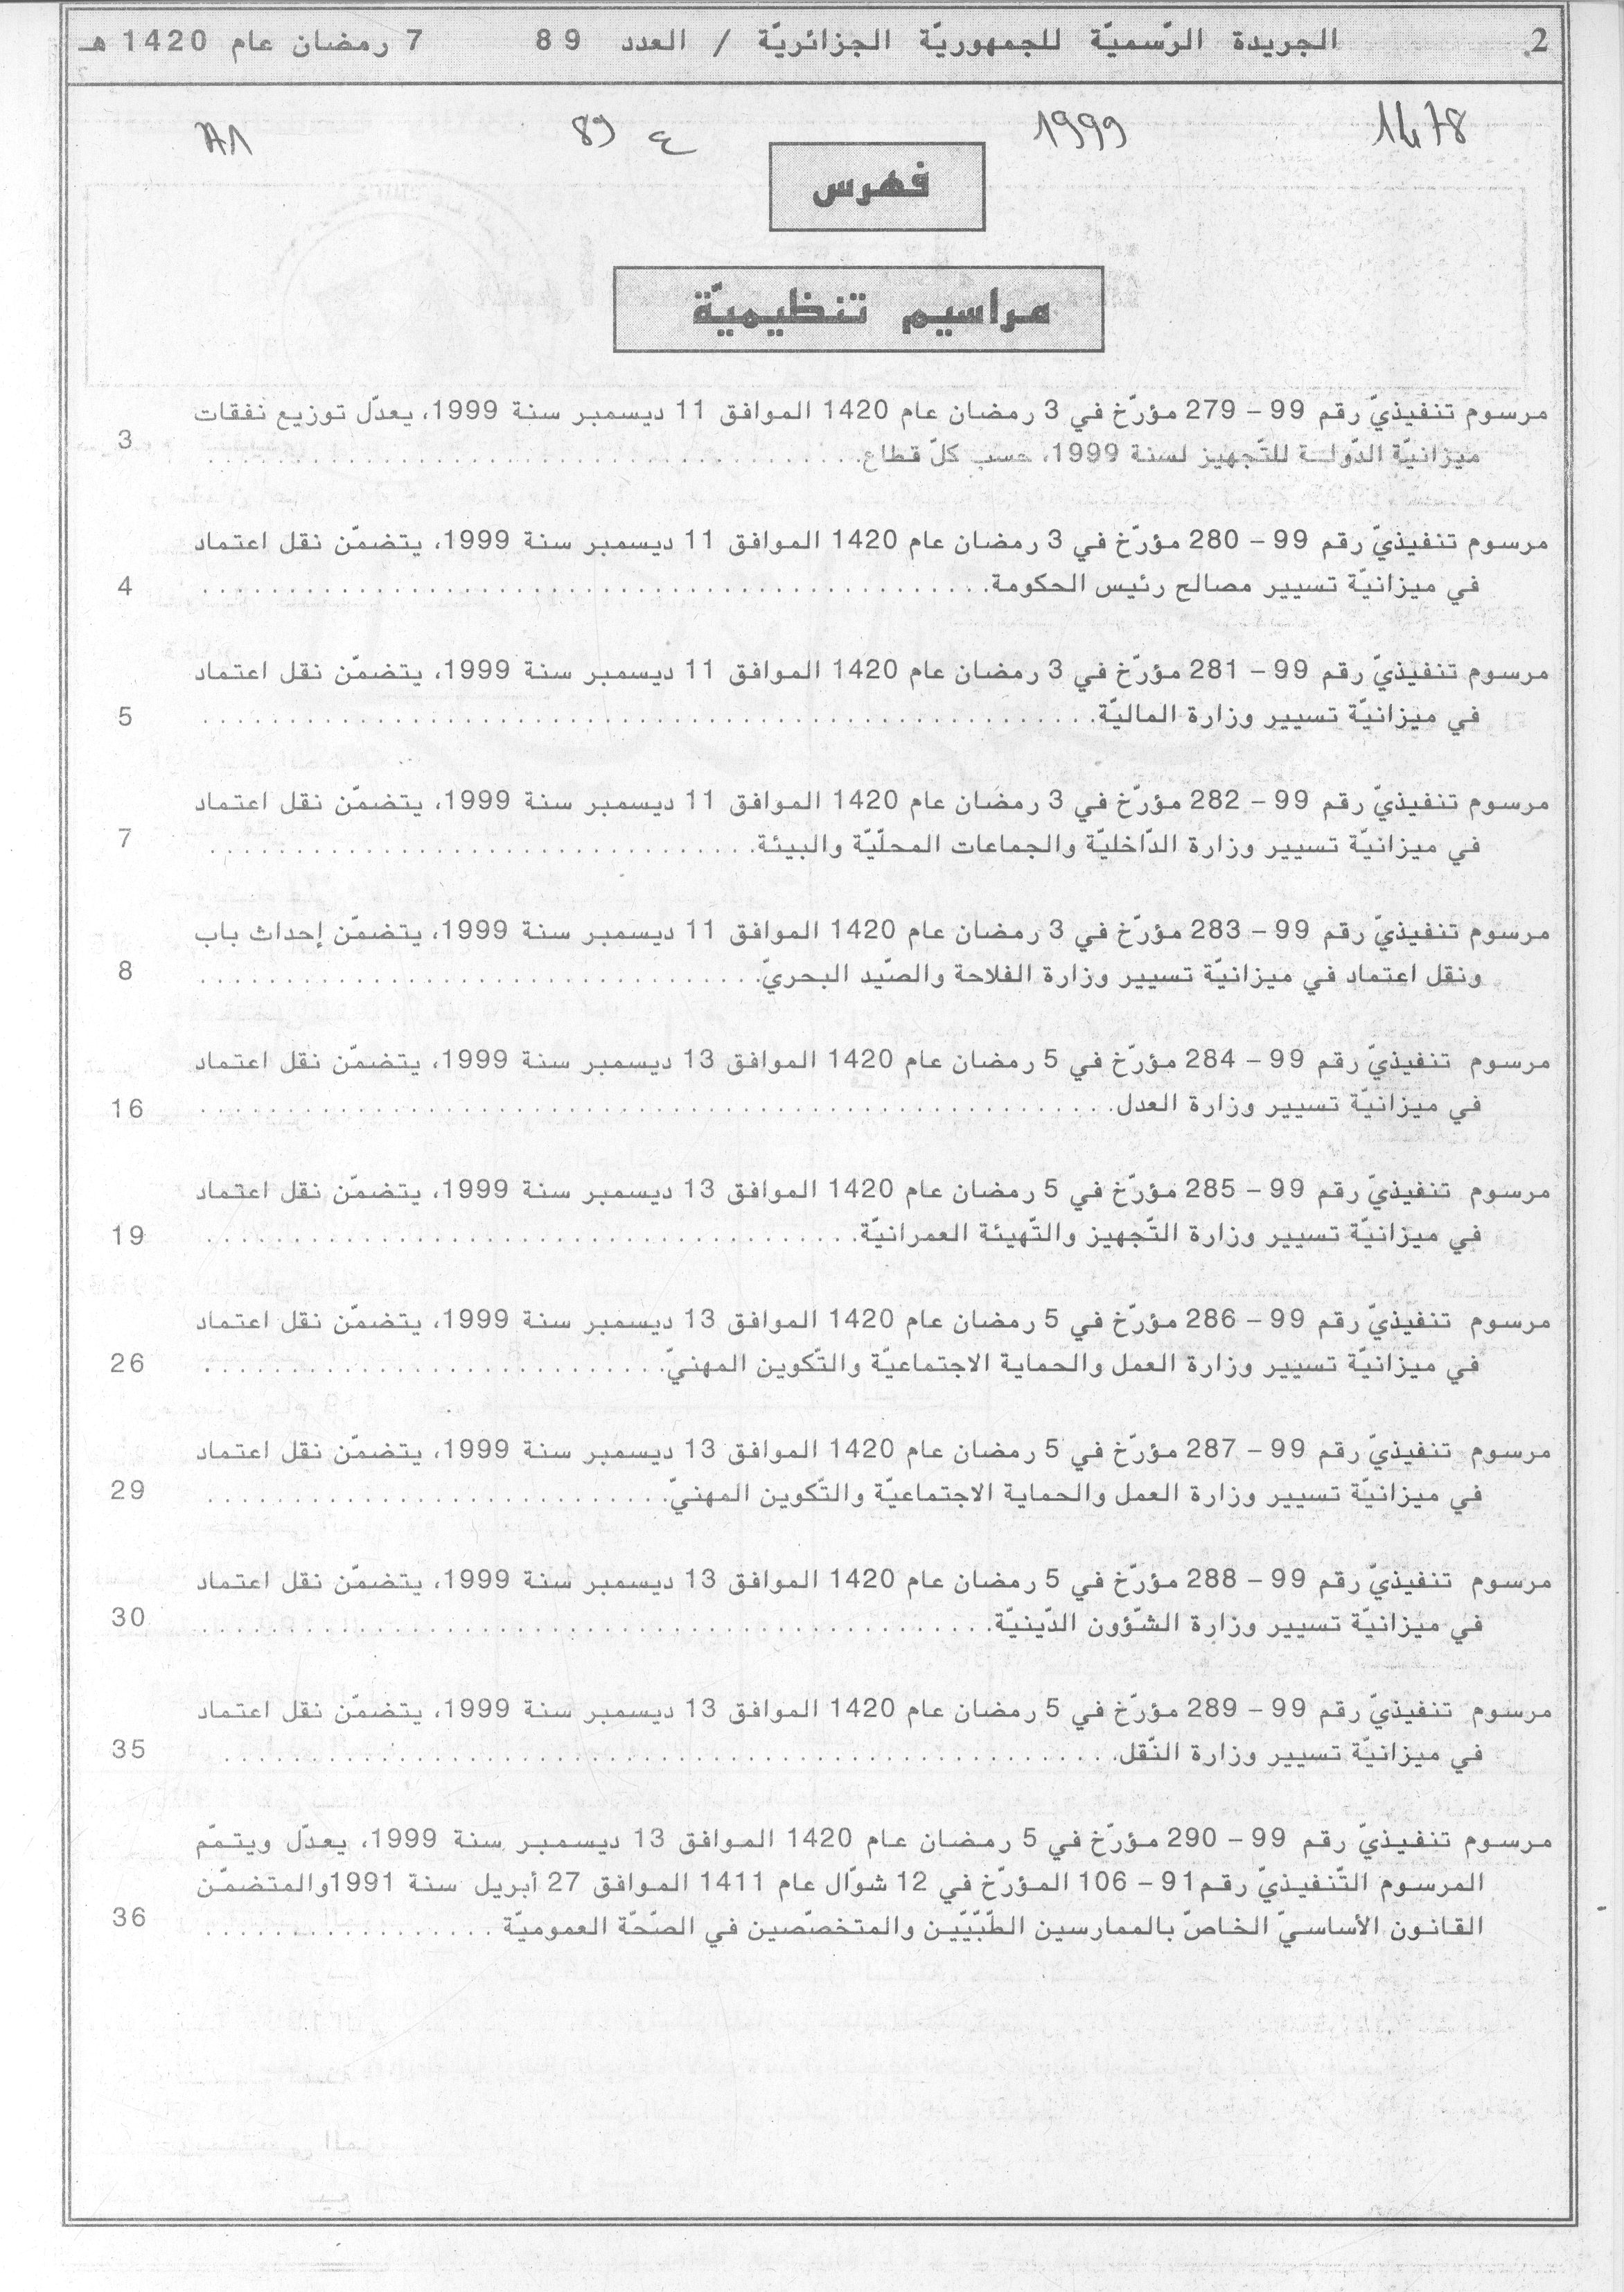 2 الجريدة الرّسميّة للجمهوريّة الجزائريّة / العدد 89 7 رمضان عام 1420 هـ
1478 1999 ع 89
فهرس
مراسيم تنظيميّة
مرسوم تنفيذيّ رقم 99 – 279 مؤرّخ في 3 رمضان عام 1420 الموافق 11 ديسمبر سنة 1999، يعدّل توزيع نفقات
ميزانيّة الدّولة للتّجهيز لسنة 1999، حسب كلّ قطاع. . . . . . . . . . 3
مرسوم تنفيذيّ رقم 99 – 280 مؤرّخ في 3 رمضان عام 1420 الموافق 11 ديسمبر سنة 1999، يتضمّن نقل اعتماد
في ميزانيّة تسيير مصالح رئيس الحكومة. . . . . . . . . . 4
مرسوم تنفيذيّ رقم 99 – 281 مؤرّخ في 3 رمضان عام 1420 الموافق 11 ديسمبر سنة 1999، يتضمّن نقل اعتماد
في ميزانيّة تسيير وزارة الماليّة. . . . . . . . . . 5
مرسوم تنفيذيّ رقم 99 – 282 مؤرّخ في 3 رمضان عام 1420 الموافق 11 ديسمبر سنة 1999، يتضمّن نقل اعتماد
في ميزانيّة تسيير وزارة الدّاخليّة والجماعات المحلّيّة والبيئة. . . . . . . . . . 7
مرسوم تنفيذيّ رقم 99 – 283 مؤرّخ في 3 رمضان عام 1420 الموافق 11 ديسمبر سنة 1999، يتضمّن إحداث باب
ونقل اعتماد في ميزانيّة تسيير وزارة الفلاحة والصّيد البحريّ. . . . . . . . . . 8
مرسوم تنفيذيّ رقم 99 – 284 مؤرّخ في 5 رمضان عام 1420 الموافق 13 ديسمبر سنة 1999، يتضمّن نقل اعتماد
في ميزانيّة تسيير وزارة العدل. . . . . . . . . . 16
مرسوم تنفيذيّ رقم 99 – 285 مؤرّخ في 5 رمضان عام 1420 الموافق 13 ديسمبر سنة 1999، يتضمّن نقل اعتماد
في ميزانيّة تسيير وزارة التّجهيز والتّهيئة العمرانيّة. . . . . . . . . . 19
مرسوم تنفيذيّ رقم 99 – 286 مؤرّخ في 5 رمضان عام 1420 الموافق 13 ديسمبر سنة 1999، يتضمّن نقل اعتماد
في ميزانيّة تسيير وزارة العمل والحماية الاجتماعيّة والتّكوين المهنيّ. . . . . . . . . . 26
مرسوم تنفيذيّ رقم 99 – 287 مؤرّخ في 5 رمضان عام 1420 الموافق 13 ديسمبر سنة 1999، يتضمّن نقل اعتماد
في ميزانيّة تسيير وزارة العمل والحماية الاجتماعيّة والتّكوين المهنيّ. . . . . . . . . . 29
مرسوم تنفيذيّ رقم 99 – 288 مؤرّخ في 5 رمضان عام 1420 الموافق 13 ديسمبر سنة 1999، يتضمّن نقل اعتماد
في ميزانيّة تسيير وزارة الشّؤون الدّينيّة. . . . . . . . . . 30
مرسوم تنفيذيّ رقم 99 – 289 مؤرّخ في 5 رمضان عام 1420 الموافق 13 ديسمبر سنة 1999، يتضمّن نقل اعتماد
في ميزانيّة تسيير وزارة النّقل. . . . . . . . . . 35
مرسوم تنفيذيّ رقم 99 – 290 مؤرّخ في 5 رمضان عام 1420 الموافق 13 ديسمبر سنة 1999، يعدّل ويتمّم
المرسوم التّنفيذيّ رقم 91 – 106 المؤرّخ في 12 شوّال عام 1411 الموافق 27 أبريل سنة 1991 والمتضمّن
القانون الأساسيّ الخاصّ بالممارسين الطّبّيّين والمتخصّصين في الصّحّة العموميّة . . . . . . . . . . 36